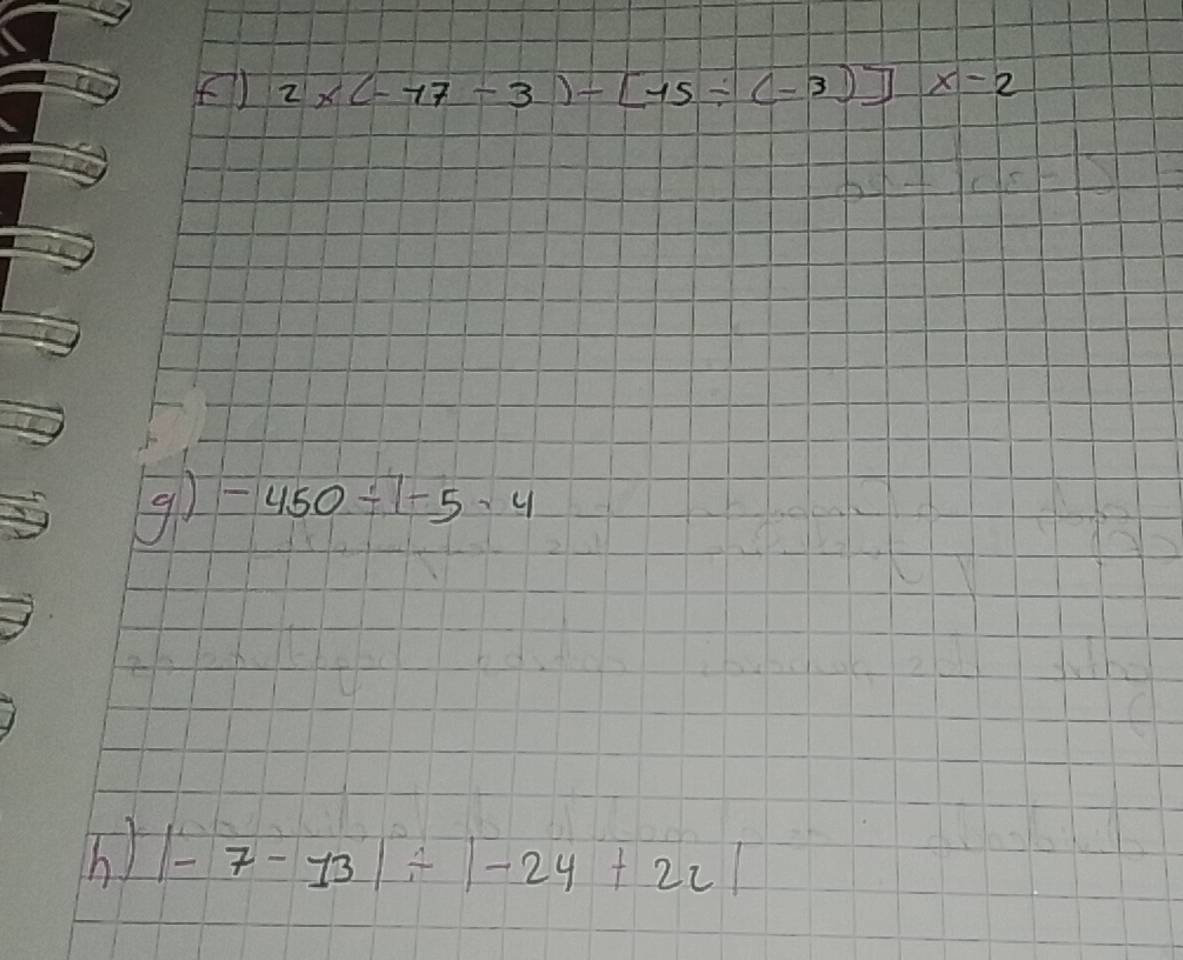 f) 2 x (- 17 - 3 ) - [ 15 ÷ (- 3 ) ] x - 2
g) - 450 ÷ |- 5 · 4
h) |- 7 - 13 | ÷ |- 24 + 22 |